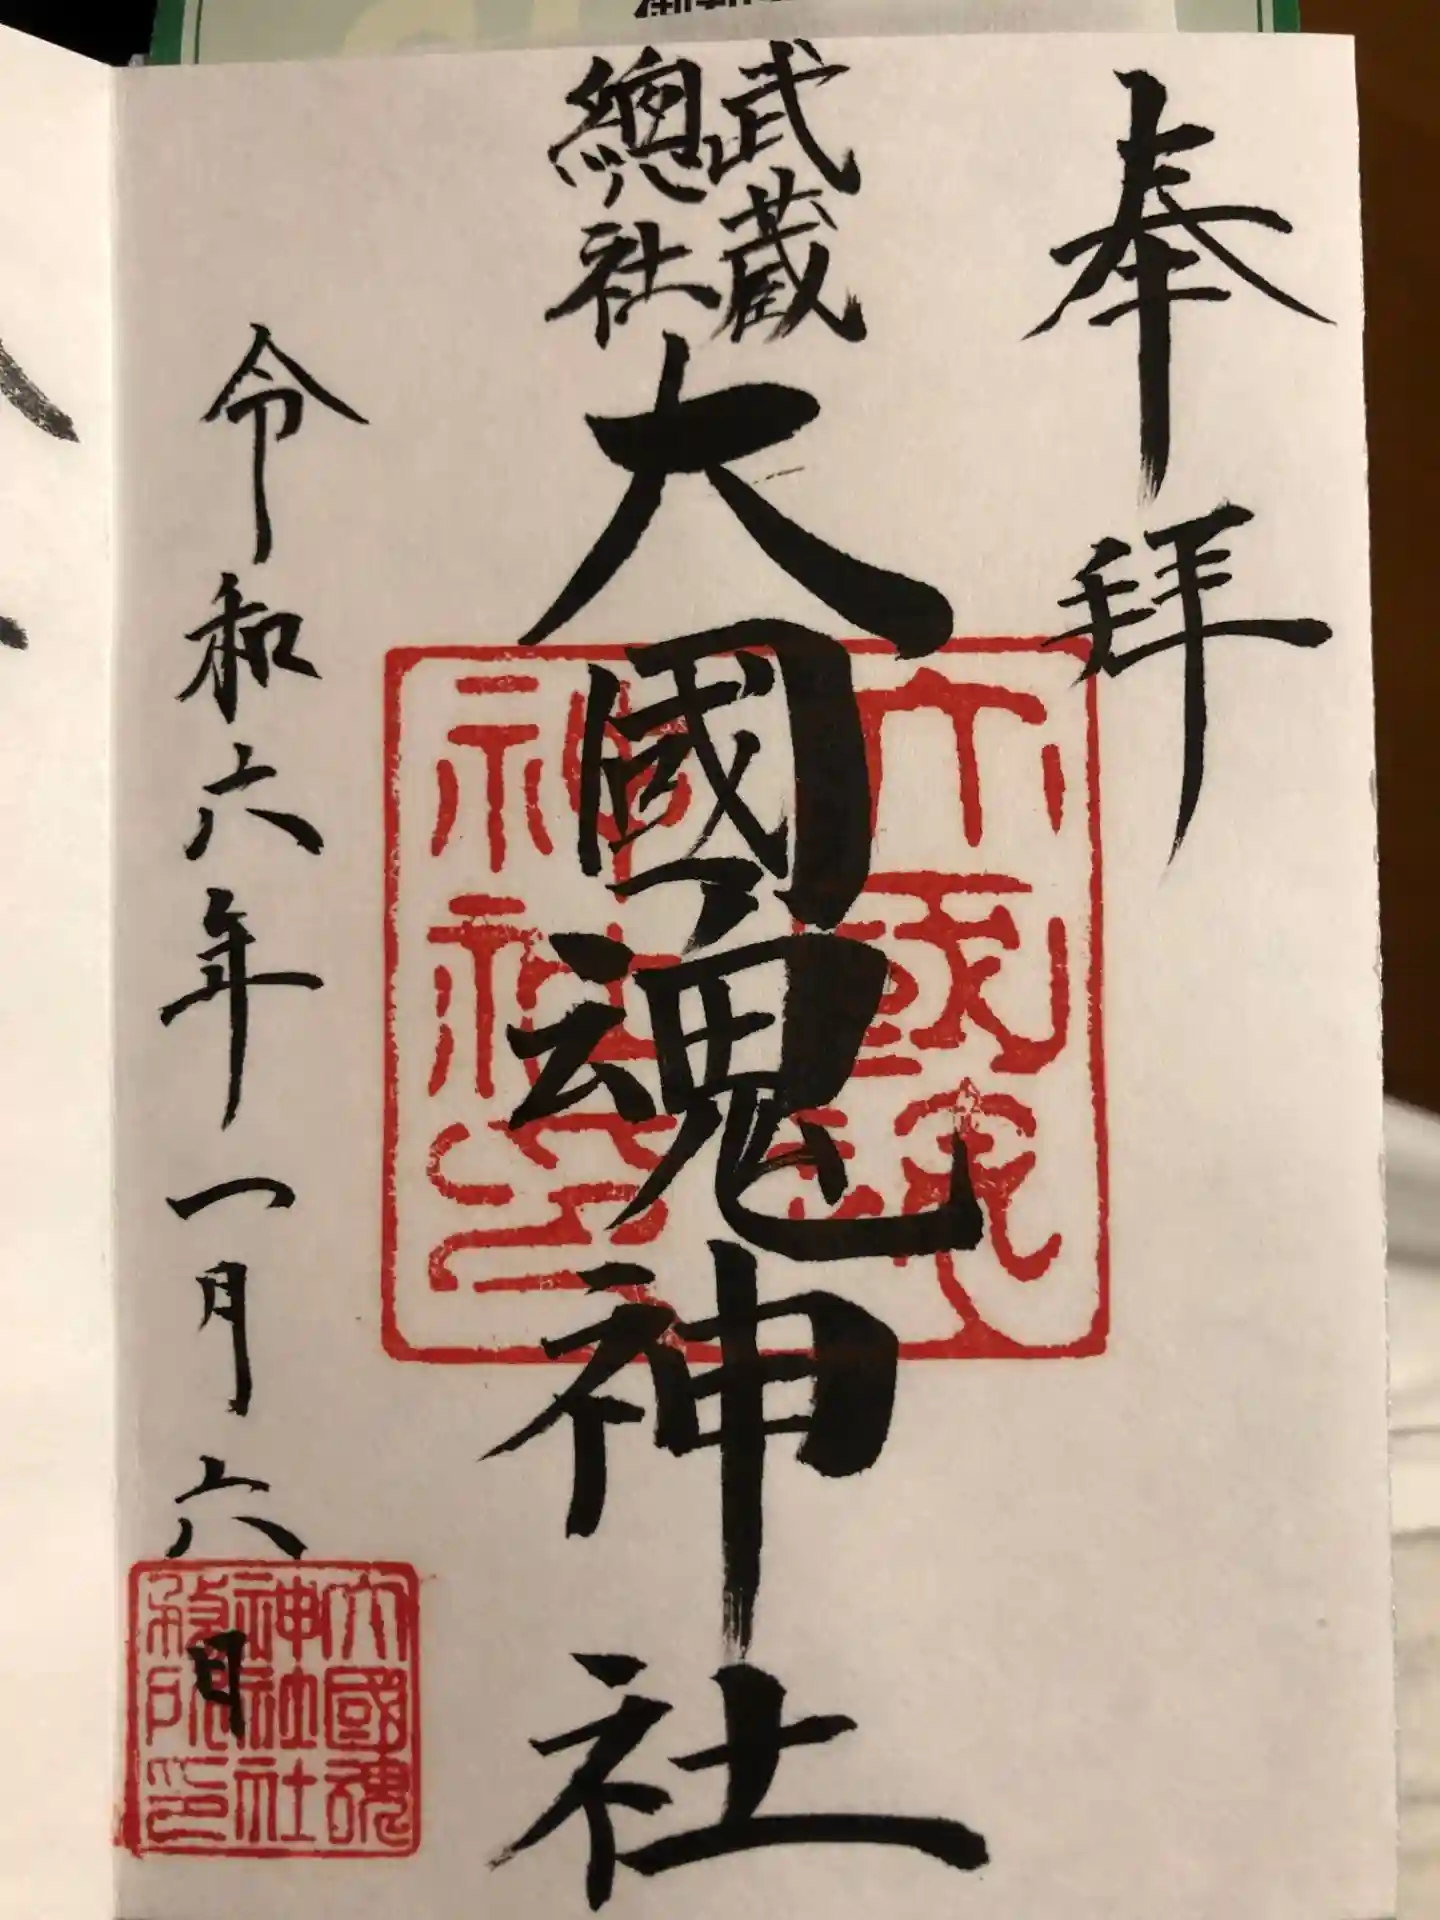 奉拝
武蔵
總社
大國魂神社
大國魂
神社印
令和六年一月六日
大國魂
神社社
務所印